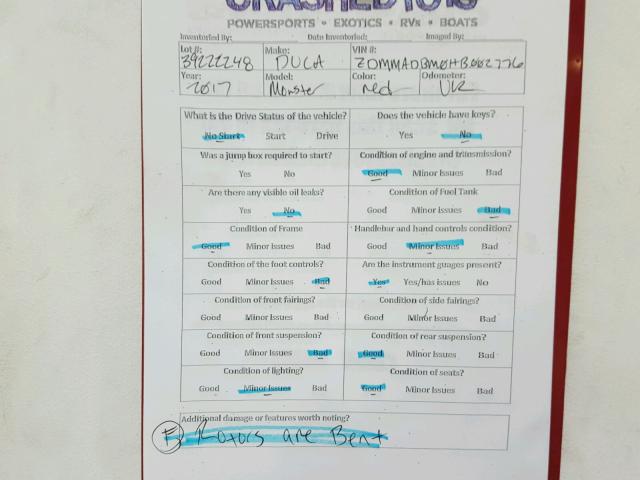 CRASHEDTOYS
POWERSPORTS • EXOTICS • RVs • BOATS
Inventoried By: Date Inventoried: Imaged By:
Lot #: Make: VIN #:
39222248 DUCA ZDMMADBM0HB002776
Year: Model: Color: Odometer:
2017 Monster red UK
What is the Drive Status of the vehicle? Does the vehicle have keys?
No Start Start Drive Yes No
Was a jump box required to start? Condition of engine and transmission?
Yes No Good Minor Issues Bad
Are there any visible oil leaks? Condition of Fuel Tank
Yes No Good Minor Issues Bad
Condition of Frame Handlebar and hand controls condition?
Good Minor Issues Bad Good Minor Issues Bad
Condition of the foot controls? Are the instrument guages present?
Good Minor Issues Bad Yes Yes/has issues No
Condition of front fairings? Condition of side fairings?
Good Minor Issues Bad Good Minor Issues Bad
Condition of front suspension? Condition of rear suspension?
Good Minor Issues Bad Good Minor Issues Bad
Condition of lighting? Condition of seats?
Good Minor Issues Bad Good Minor Issues Bad
Additional damage or features worth noting?
F Rotors are Bent